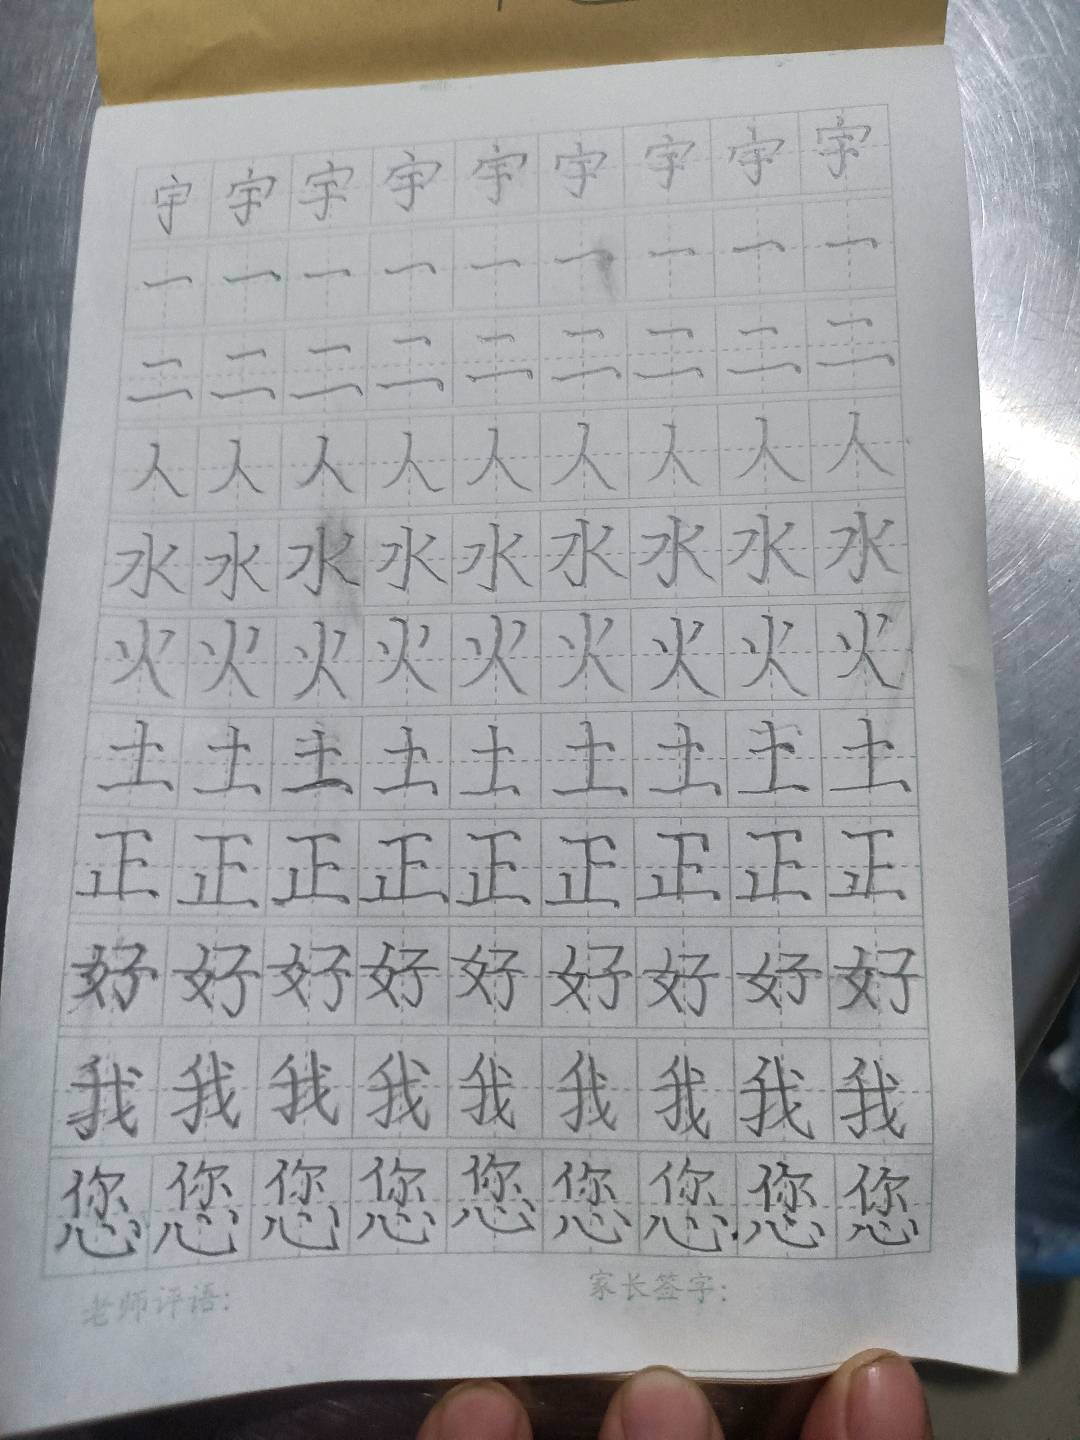 字字字字字字字字字
一一一一一一一一一
二二二二二二二二二
人人人人人人人人人
水水水水水水水水水
火火火火火火火火火
土土土土土土土土土
正正正正正正正正正
好好好好好好好好好
我我我我我我我我我
您您您您您您您您您
老师评语: 家长签字: